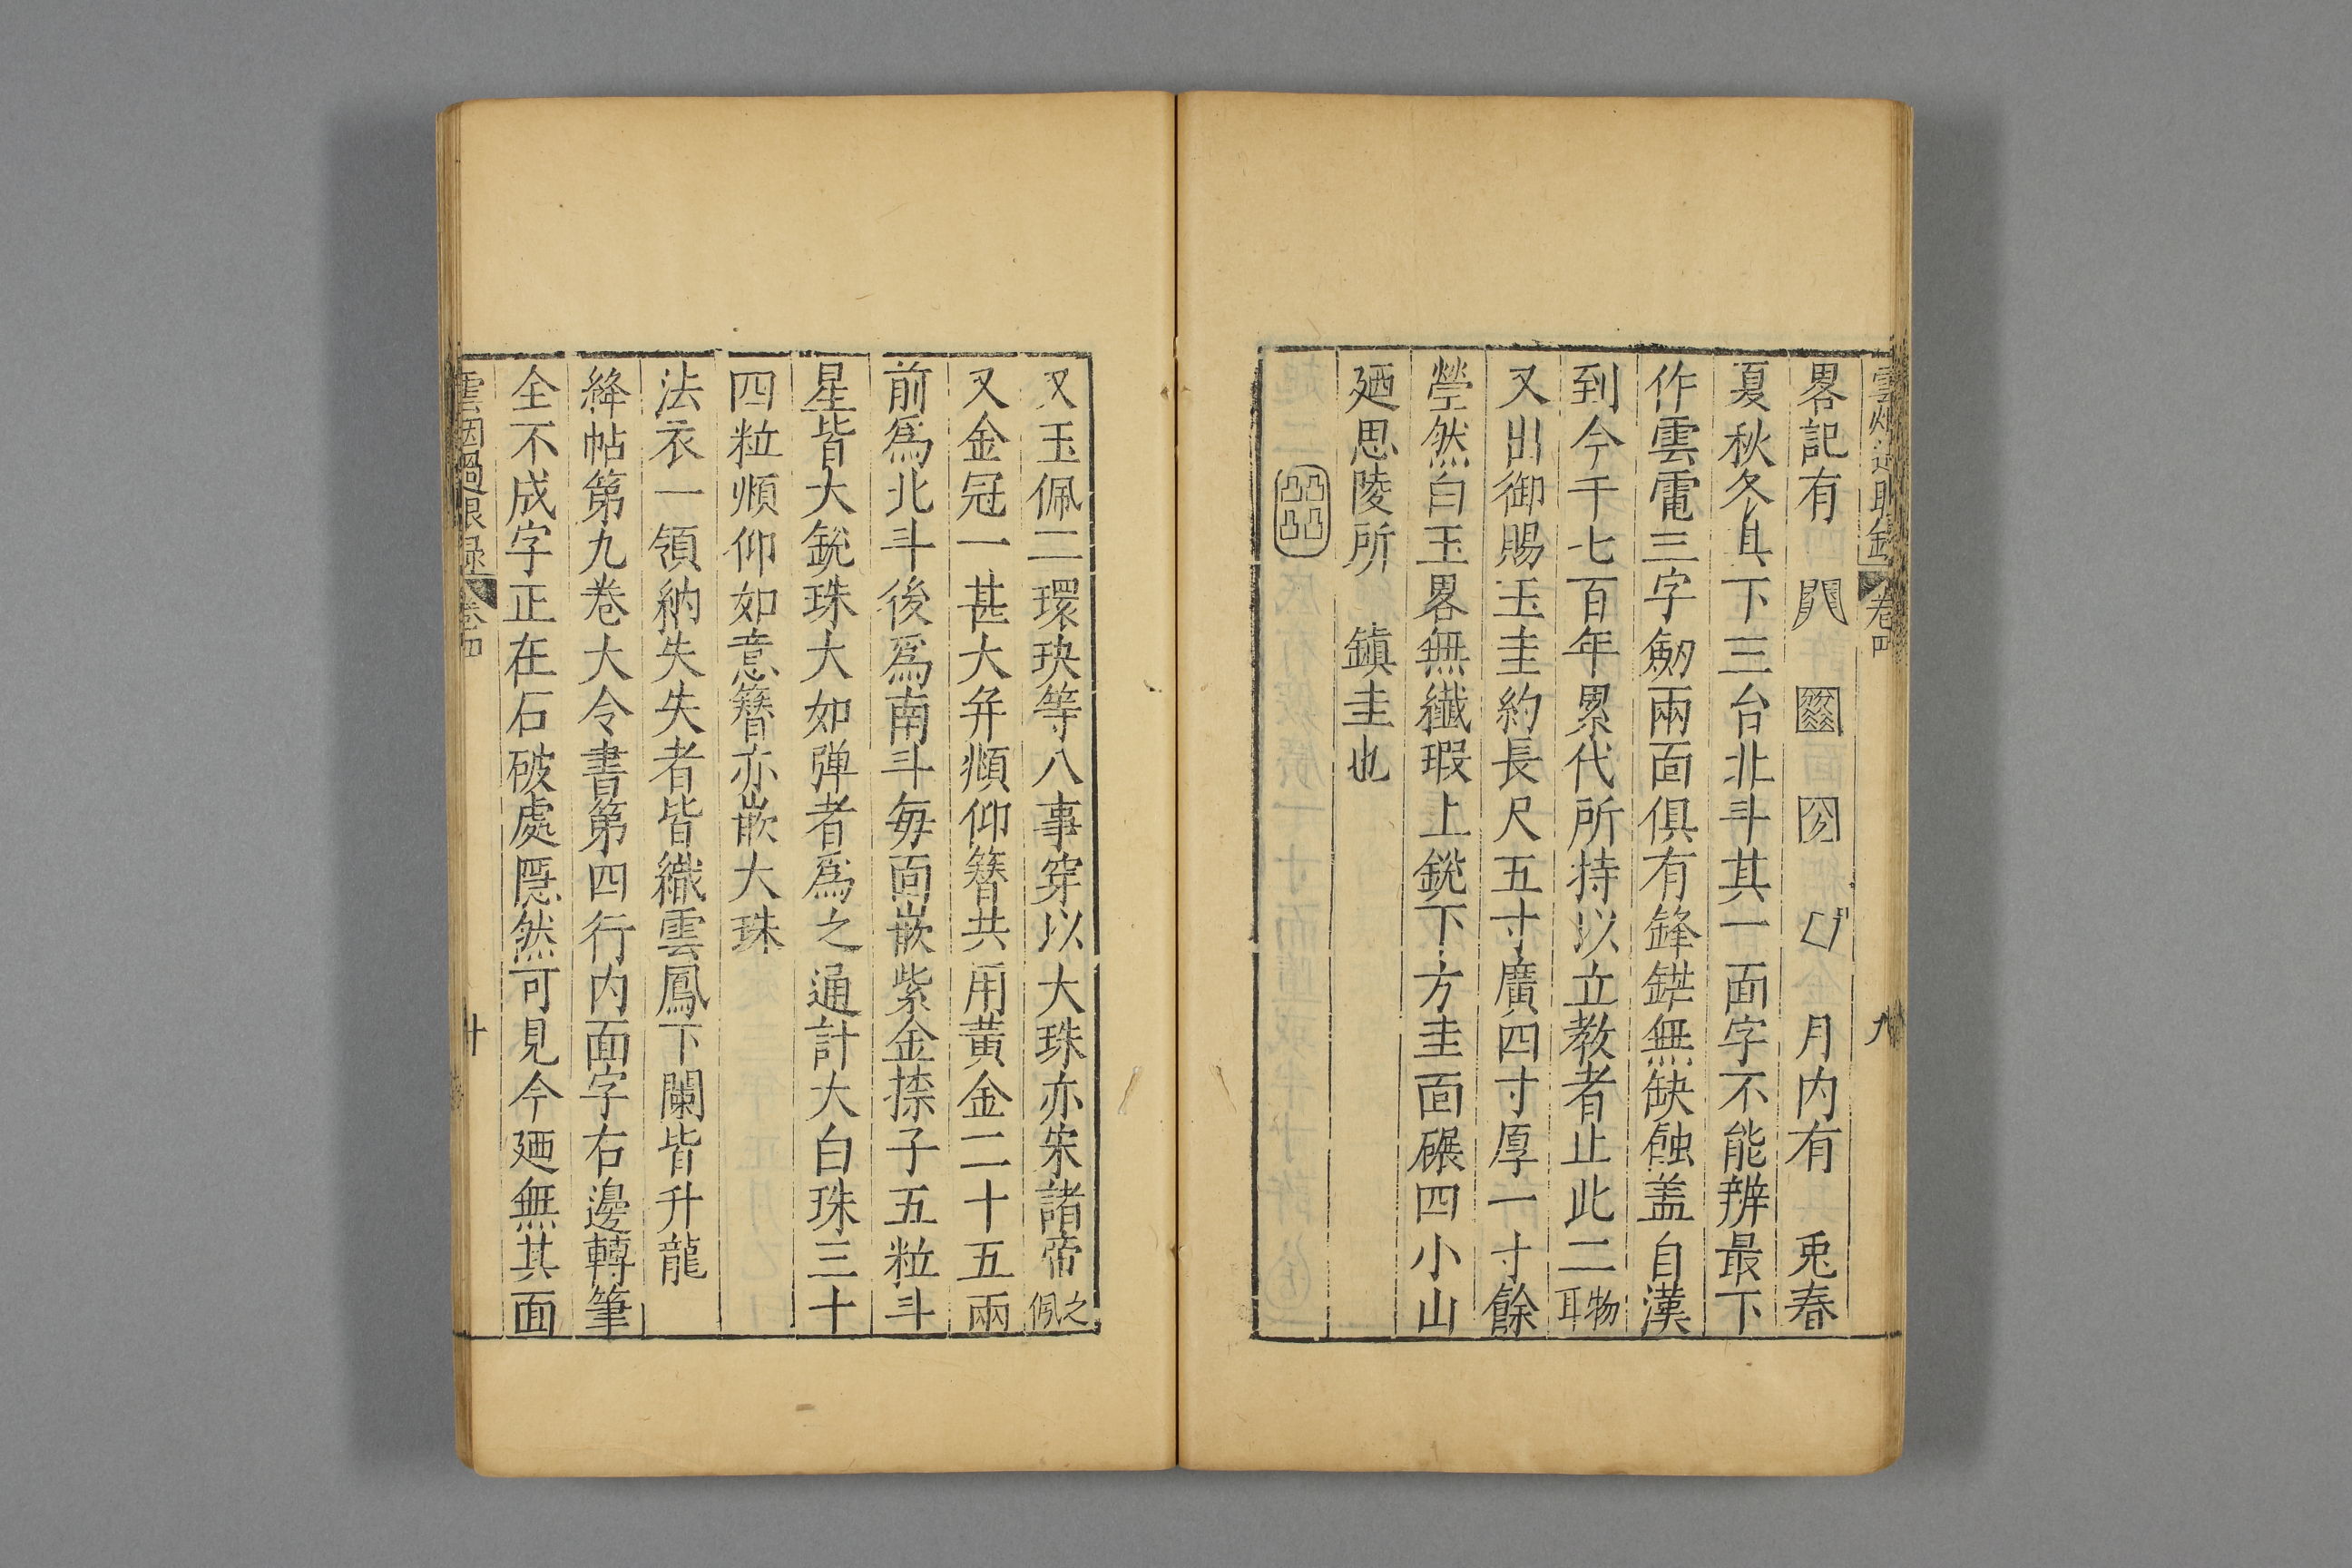 雲烟過眼錄 卷四 九
畧記有 月内有 兎春
夏秋冬其下三台北斗其一面字不能辨最下
作雲電三字劒兩面俱有鋒鋩無缺蝕盖自漢
到今千七百年累代所持以立教者止此二物耳
又出御賜玉圭約長尺五寸廣四寸厚一寸餘
瑩然白玉畧無纖瑕上銳下方圭面碾四小山
廼思陵所 鎮圭也
又玉佩二環玦等八事穿以大珠亦宋諸帝之佩
又金冠一甚大并頫仰簪共用黄金二十五兩
前爲北斗後爲南斗每面嵌紫金㮏子五粒斗
星皆大銳珠大如弹者爲之通計大白珠三十
四粒頫仰如意簪亦嵌大珠
法衣一領納失失者皆織雲鳳下闌皆升龍
絳帖第九卷大令書第四行内面字右邊轉筆
全不成字正在石破處隱然可見今廼無其面
雲烟過眼錄 卷四 十